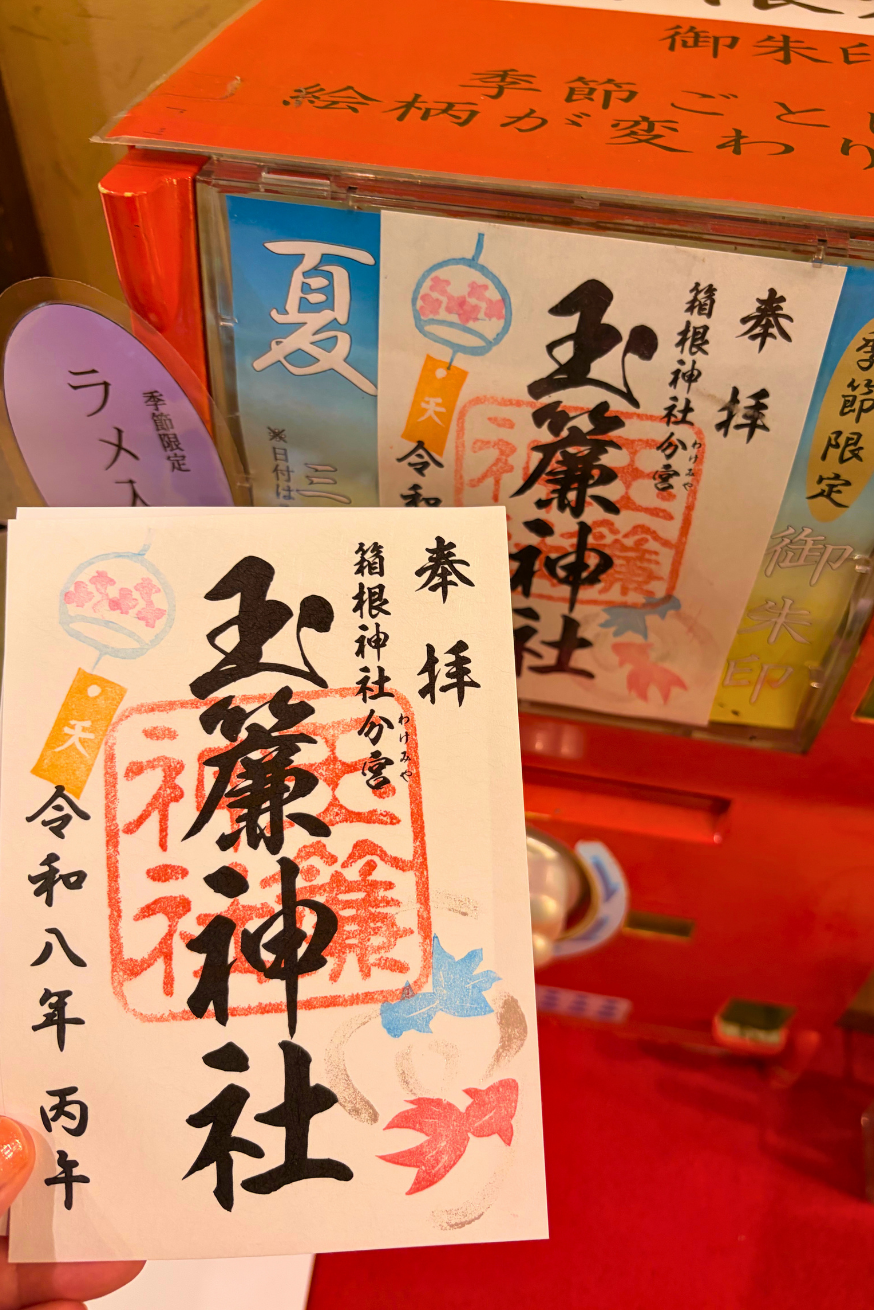 御朱印
季節ごと
絵柄が変わり
夏
三
※日付は
天
令和
玉簾神社
箱根神社分宮
わけみや
奉拝
季節限定
御朱印
季節限定
ラメ入
奉拝
箱根神社分宮
わけみや
玉簾神社
玉簾神社
天
令和八年 丙午